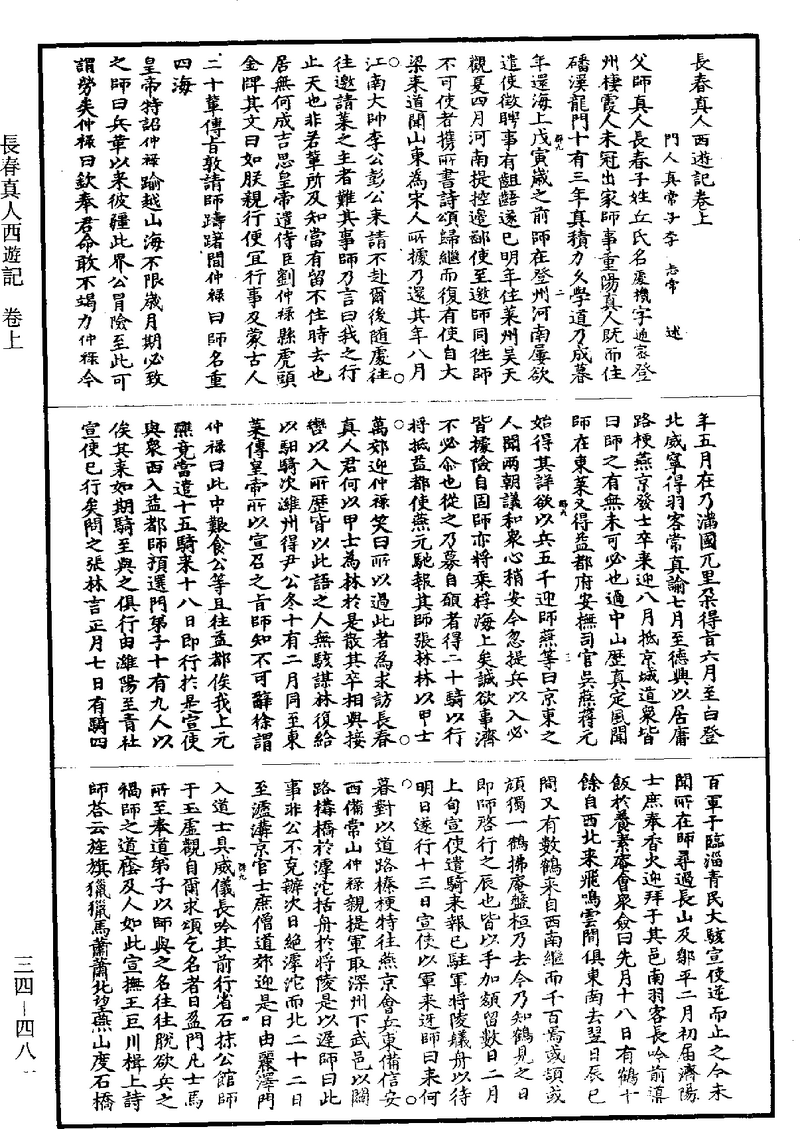 長春真人西遊記卷上
門人真常子李志常述
父師真人長春子姓丘氏名處機字通密登
州棲霞人未冠出家師事重陽真人既而住
磻溪龍門十有三年真積力久學道乃成暮
年還海上戊寅歲之前師在登州河南屢欲
遣使徵聘事有齟齬遂已明年住萊州昊天
觀夏四月河南提控邊鄙使至邀師同往師
不可使者攜所書詩頌歸繼而復有使自大
梁来道聞山東為宋人所據乃還其年八月
江南大帥李公彭公来請不赴爾後隨處往
往邀請萊之主者難其事師乃言曰我之行
止天也非若輩所及知當有留不住時去也
居無何成吉思皇帝遣侍臣劉仲祿縣虎頭
金牌其文曰如朕親行便宜行事及蒙古人
二十輩傳旨敦請師躊躇間仲祿曰師名重
四海
皇帝特詔仲祿踰越山海不限歲月期必致
之師曰兵革以来彼疆此界公冒險至此可
謂勞矣仲祿曰欽奉君命敢不竭力仲祿今
年五月在乃滿國兀里朶得旨六月至白登
北威寧得羽客常真諭七月至德興以居庸
路梗燕京發士卒来迎八月抵京城道衆皆
曰師之有無未可必也過中山歷真定風聞
師在東萊又得益都府安撫司官吳燕蔣元
始得其詳欲以兵五千迎師燕等曰京東之
人聞兩朝議和衆心稍安今忽提兵以入必
皆據險自固師亦將乘桴海上矣誠欲事濟
不必尒也從之乃募自願者得二十騎以行
將抵益都使燕元馳報其師張林林以甲士
萬郊迎仲祿笑曰所以過此者為求訪長春
真人君何以甲士為林於是散其卒相與接
轡以入所歷皆以此語之人無駭謀林復給
以馹騎次濰州得尹公冬十有二月同至東
萊傳皇帝所以宣召之旨師知不可辭徐謂
仲祿曰此中艱食公等且往益都俟我上元
醮竟當遣十五騎来十八日即行於是宣使
與衆西入益都師預選門弟子十有九人以
俟其来如期騎至與之俱行由濰陽至青社
宣使已行矣問之張林言正月七日有騎四
百軍于臨淄青民大駭宣使逆而止之今未
聞所在師尋過長山及鄒平二月初屆濟陽
士庶奉香火迎拜于其邑南羽客長吟前導
飯於養素菴會衆僉曰先月十八日有鶴十
餘自西北来飛鳴雲間俱東南去翌日辰巳
間又有數鶴来自西南繼而千百焉或頡或
頏獨一鶴拂庵盤桓乃去今乃知鶴見之日
即師啓行之辰也皆以手加額留數日二月
上旬宣使遣騎来報已駐軍將陵艤舟以待
明日遂行十三日宣使以軍来迓師曰来何
暮對以道路榛梗特往燕京會兵東備信安
西備常山仲祿親提軍取深州下武邑以闢
路構橋於滹沱括舟於將陵是以遲師曰此
事非公不克辦次日絕滹沱而北二十二日
至瀘溝京官士庶僧道郊迎是日由麗澤門
入道士具威儀長吟其前行省石抹公館師
于玉虛觀自爾求頌乞名者日盈門凡士馬
所至奉道弟子以師與之名往往脫欲兵之
禍師之道廕及人如此宣撫王巨川楫上詩
師荅云旌旗獵獵馬蕭蕭北望燕山度石橋
長春真人西遊記　卷上
三四—四八一